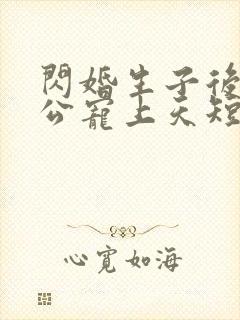 閃婚生子後
公寵上天短
心寬如海